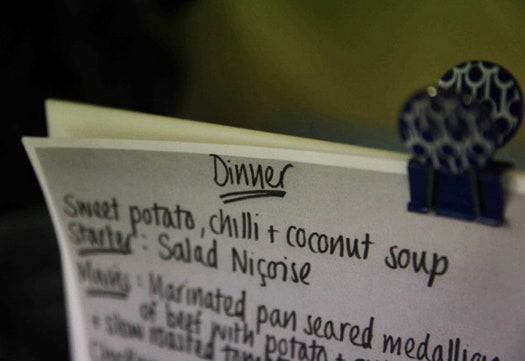 Dinner
Sweet potato, chilli + coconut soup
Starter: Salad Niçoise
Mains: Marinated pan seared medallion
of beef with potato
+ slow roasted